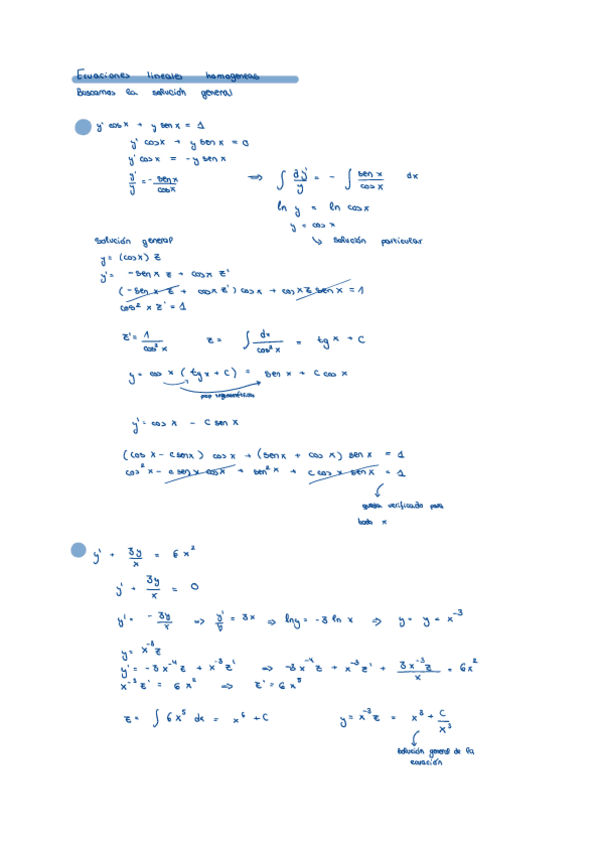 Ecuaciones lineales homogeneas
Buscamos la solución general
y' cos x + y sen x = 1
y' cos x + y sen x = 0
y' cos x = -y sen x
y'/y = - sen x/cos x ⟹ ∫ dy'/y = - ∫ sen x/cos x dx
ln y = ln cos x
y = cos x
↳ solución particular
Solución general
y = (cos x) z
y' = -sen x z + cos x z'
(-sen x z + cos x z') cos x + cos x z sen x = 1
cos² x z' = 1
z' = 1/cos² x z = ∫ dx/cos² x = tg x + C
y = cos x (tg x + C) = sen x + C cos x
por
y' = cos x - C sen x
(cos x - c sen x) cos x + (sen x + cos x) sen x = 1
cos² x - c sen x cos x + sen² x + c cos x sen x = 1
queda verificado para
todo x
y' + 3y/x = 6x²
y' + 3y/x = 0
y' = - 3y/x ⟹ y'/y = 3x ⟹ ln y = -3 ln x ⟹ y = y = x⁻³
y = x⁻³ z
y' = -3x⁻⁴ z + x⁻³ z' ⟹ -3x⁻⁴ z + x⁻³ z' + 3x⁻³z/x = 6x²
x⁻³ z' = 6x² ⟹ z' = 6x⁵
z = ∫ 6x⁵ dx = x⁶ + C y = x⁻³ z = x³ + C/x³
solución general de la
ecuación